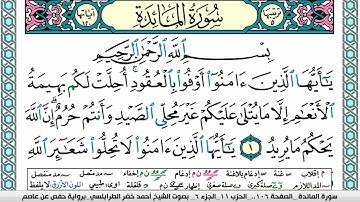 ترتيبها ٥ سُورَةُ المَائِدَةِ آياتها ١٢٠
بِسْمِ ٱللَّهِ ٱلرَّحْمَٰنِ ٱلرَّحِيمِ
يَٰٓأَيُّهَا ٱلَّذِينَ ءَامَنُوٓا۟ أَوْفُوا۟ بِٱلْعُقُودِ ۚ أُحِلَّتْ لَكُم بَهِيمَةُ
ٱلْأَنْعَٰمِ إِلَّا مَا يُتْلَىٰ عَلَيْكُمْ غَيْرَ مُحِلِّى ٱلصَّيْدِ وَأَنتُمْ حُرُمٌ ۗ إِنَّ ٱللَّهَ
يَحْكُمُ مَا يُرِيدُ ١ يَٰٓأَيُّهَا ٱلَّذِينَ ءَامَنُوا۟ لَا تُحِلُّوا۟ شَعَٰٓئِرَ ٱللَّهِ
سورة المائدة الصفحة ١٠٦ الحزب ١١ الجزء ٦ بصوت الشيخ أحمد خضر الطرابلسي برواية حفص عن عاصم